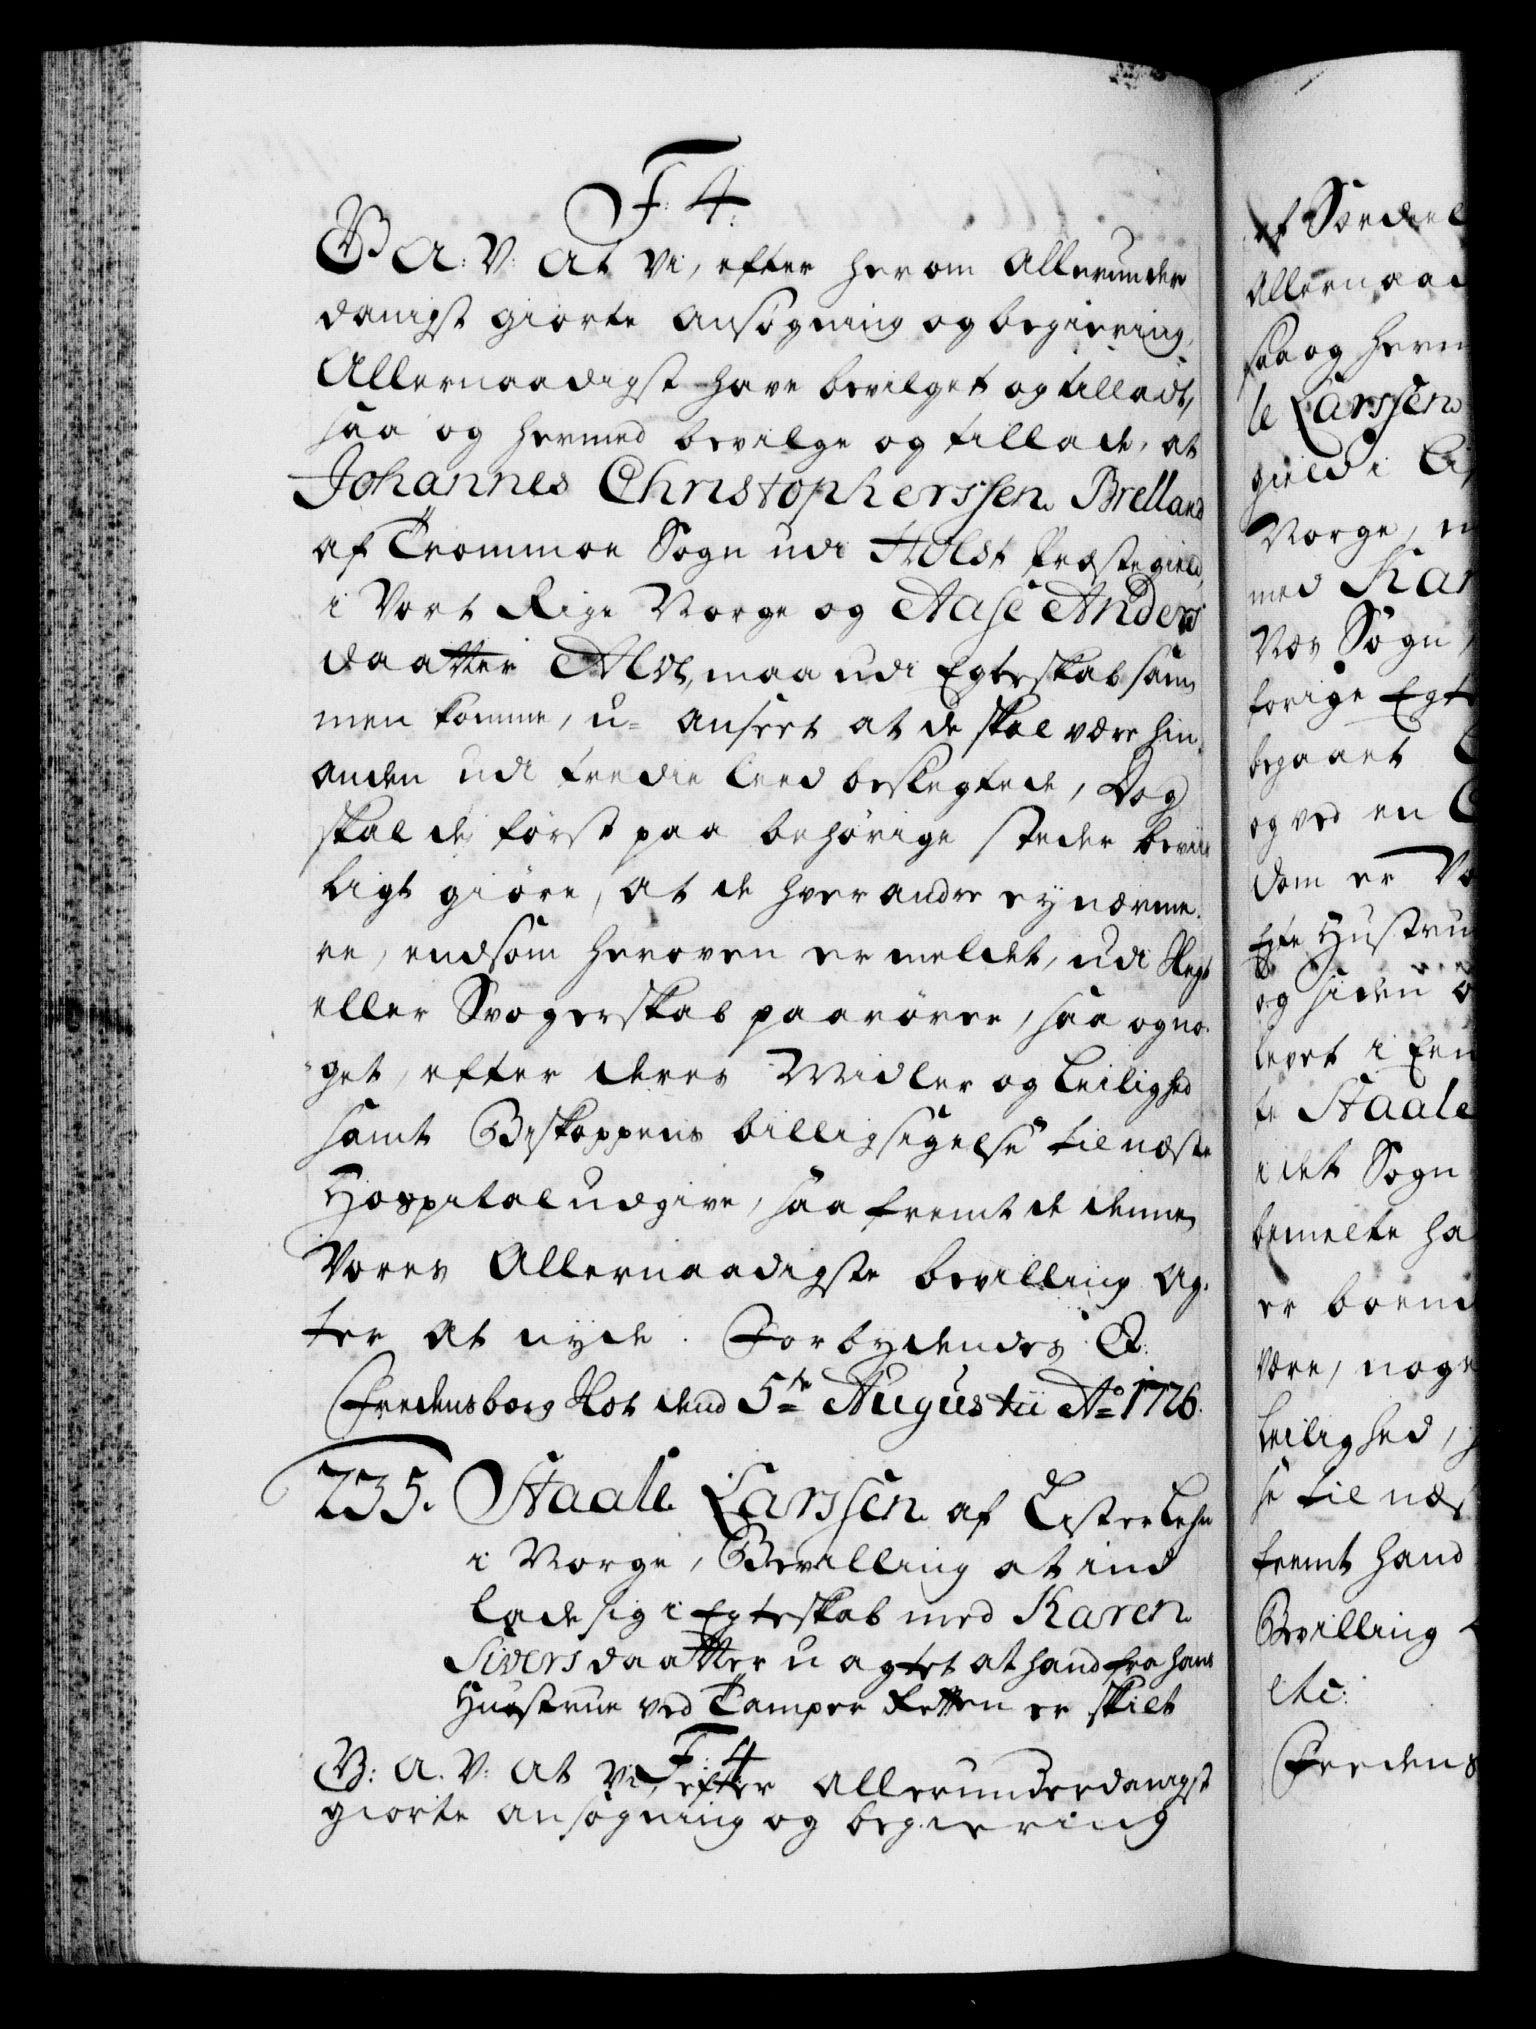 F: 4.
G: A: V: At Vi, efter herom Allerunder
danigst giorte ansøgning og begiering,
Allernaadigst have bevilget og tilladt,
saa og hermed bevilge og tillade, at
Johannes Christopherssen Brelland
af Trommøe Sogn udi Holst Præstegield,
i Vort Rige Norge og Aase Anders
daatter Alve, maa udi Egteskab sam
men komme, u- anseet at de skal være hin,
anden udi tredie leed beslegtede, Dog
skal de først paa behørige steder beviis
ligt giøre, at de hver andre ey nærme,
re, end som heroven er meldet, udi Slegt
eller Svogerskab paarører, saa og no,
get, efter deres Midler og Leilighed
samt Biskoppens billigsigelse til næste
Hospital udgive, saa fremt de denne
Vores Allernaadigste bevilling ag,
ter at nyde. Forbydendes &:
Fredensborg Slot dend 5te Augustii Ao 1726.
235. Staale Larssen af Lister Lehn
i Norge, Bevilling at ind
lade sig i Egteskab med Karen
Siversdaatter uagtet at hand fra hans
Hustrue ved Tamper Retten er skilt
F: 4
G: A. V: At Vi, efter allerunderdanigst
giorte ansøgning og begiering
af Særdeel
Allernaad
saa og herm
le Larssen
gield i Li
Norge, m
med Kar
Næs Sogn,
forige Egt
begaaet
og ved en
dom er Vo
Egte Hustru
og siden
levet i Een
te Staale
i det Sogn
bemelte ha
er boend
være, noge
Leilighed,
se til næs
fremt hand
Bevilling
etc:
Fredens